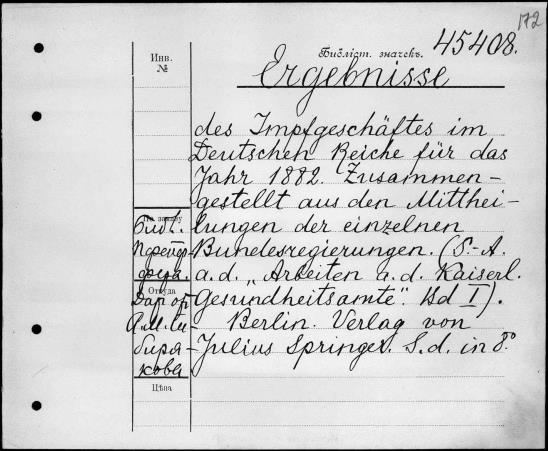 172
Библіот. значекъ. 45408.
Инв. №
Ergebnisse
des Impfgeschäftes im
Deutschen Reiche für das
Jahr 1882. Zusammen-
gestellt aus den Mitthei-
lungen der einzelnen
Bundesregierungen. (S.-A.
a. d. „Arbeiten a. d. Kaiserl.
Gesundheitsamte". Bd I).
Berlin. Verlag von
Julius Springer. S. d. in 8°
По заказу
Библ.
Откуда
Дар от
А. М. Си-
биря-
кова
Цѣна